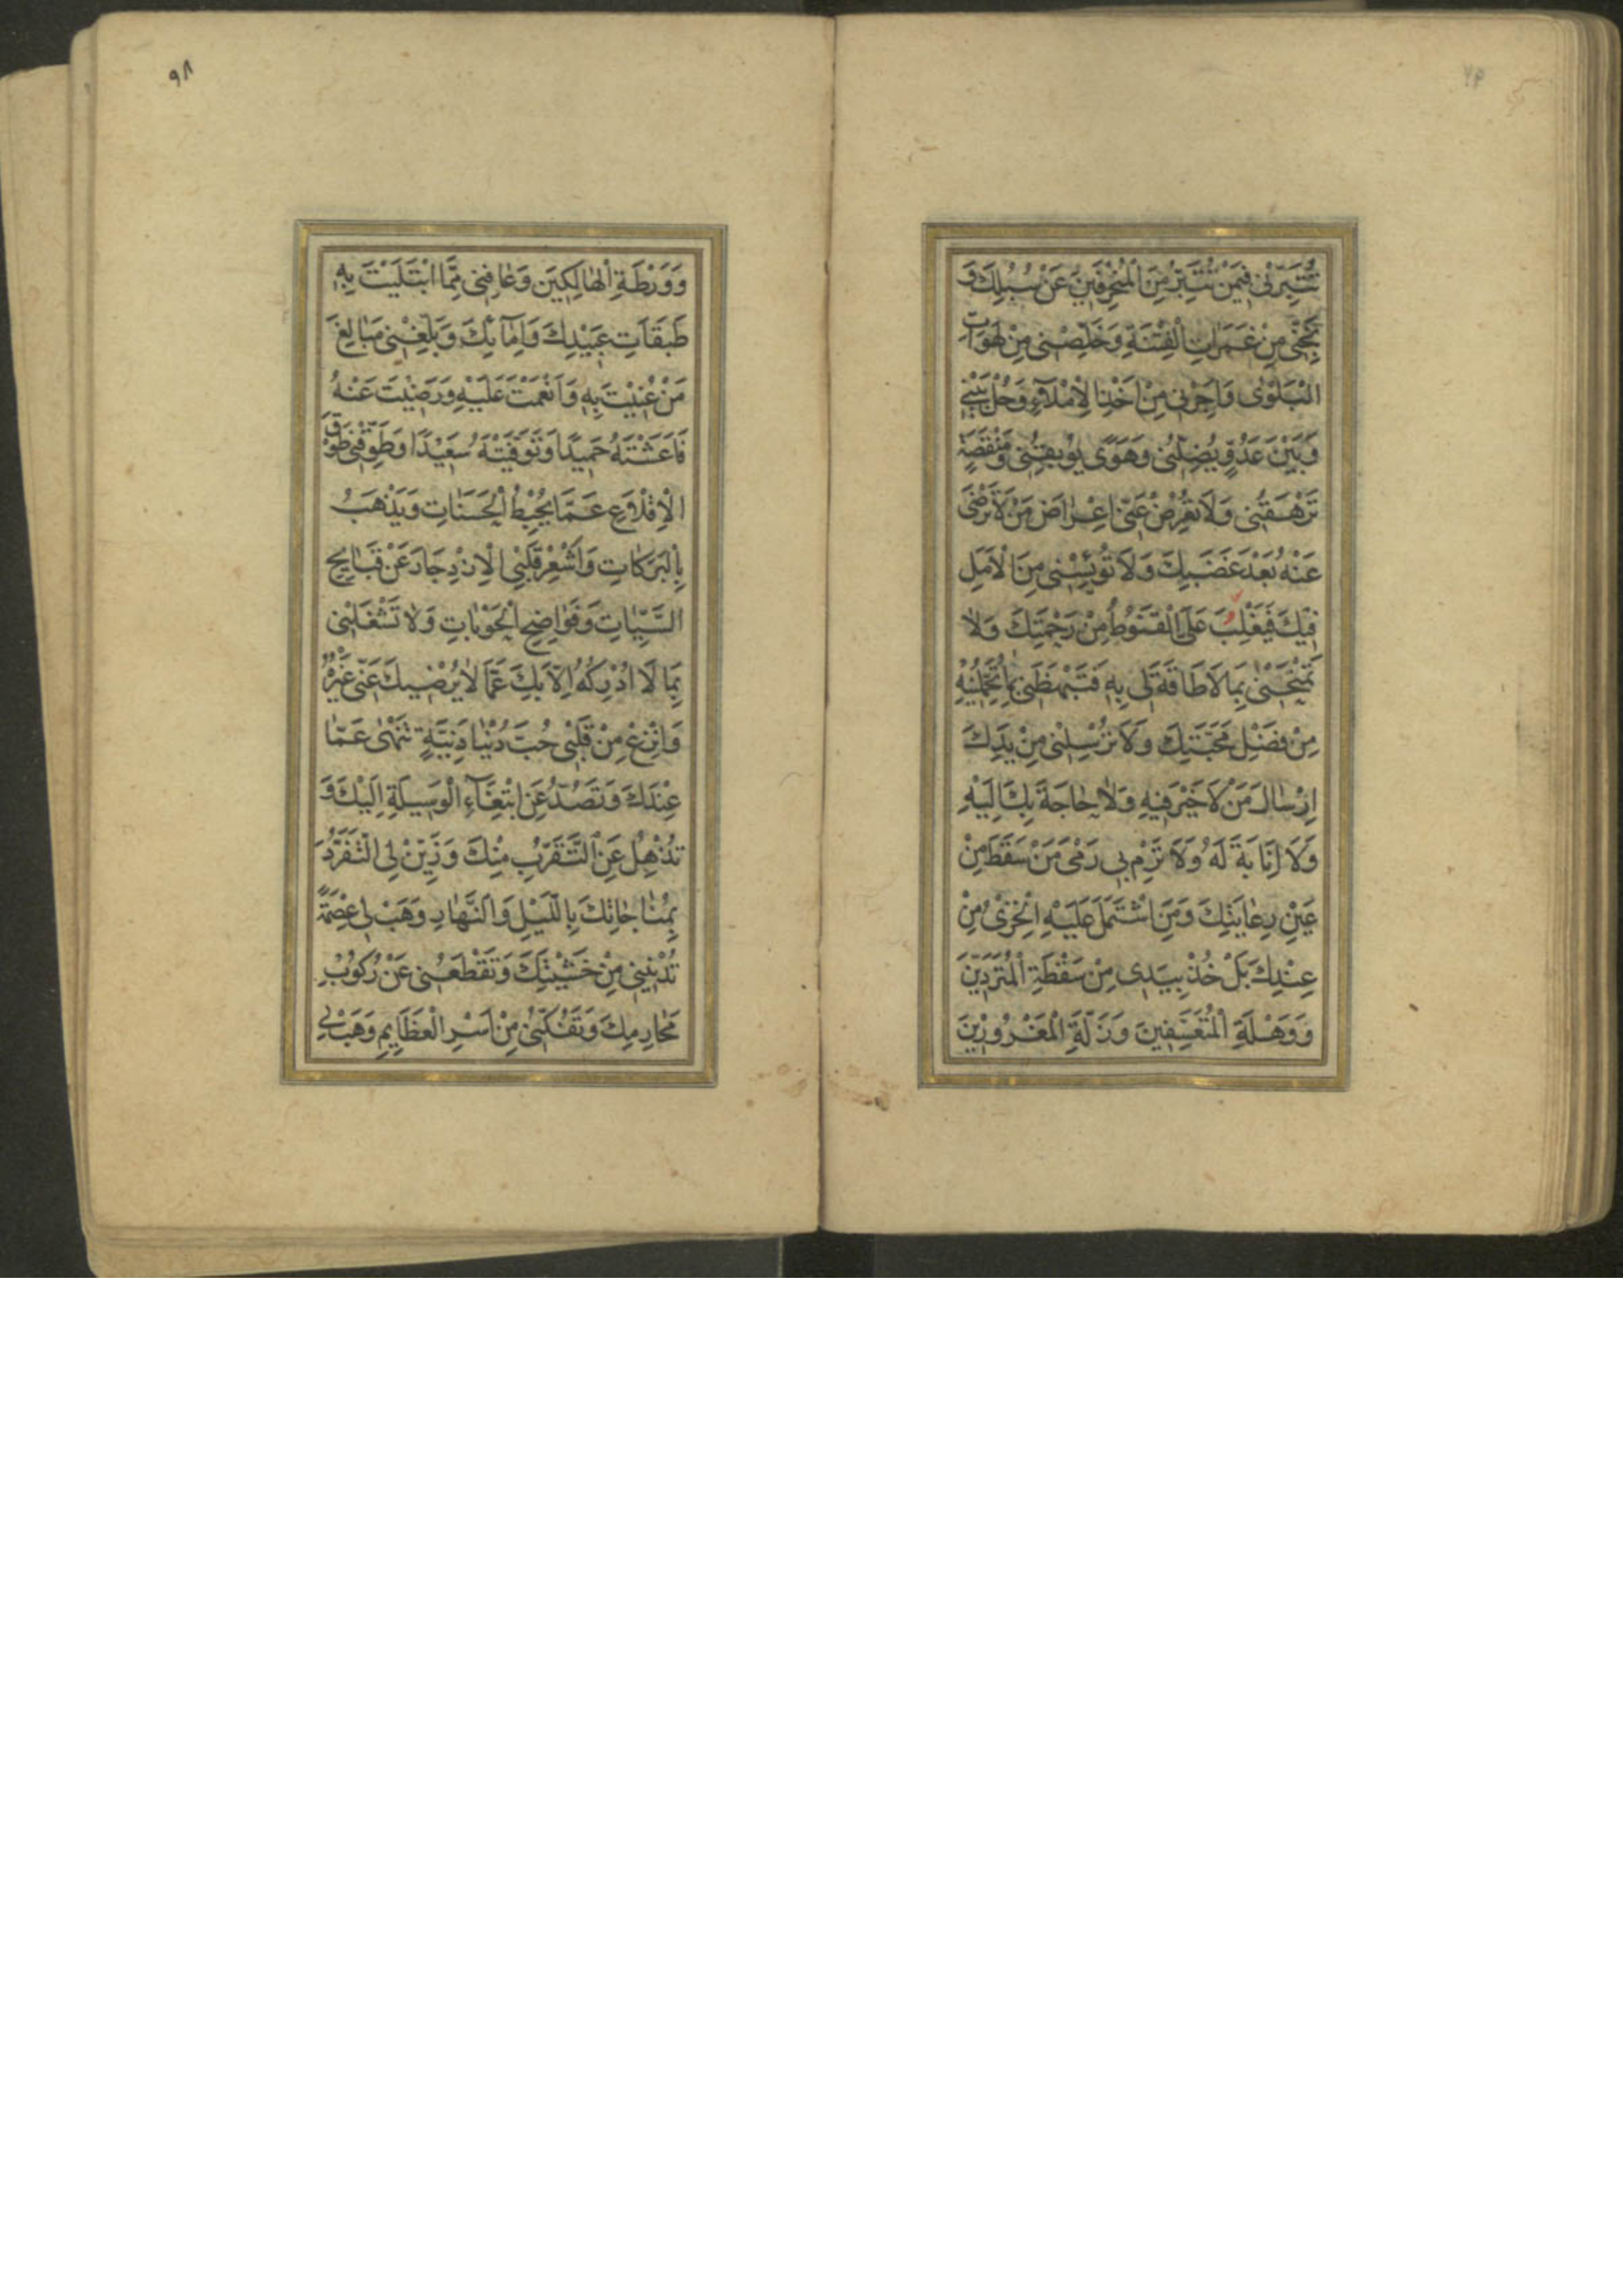 تُتَبِّرْنِي فِيمَنْ تُتَبِّرُ مِنَ الْمُنْحَرِفِينَ عَنْ سُبُلِكَ وَ
نَجِّنِي مِنْ غَمَرَاتِ الْفِتْنَةِ وَخَلِّصْنِي مِنْ لَهَوَاتِ
الْبَلْوٰى وَاَجِرْنِي مِنْ اَخْذِنَا لْاِمْلَآءِ وَحُلْ بَيْنِي
وَبَيْنَ عَدُوٍّ يُضِلُّنِي وَهَوًى يُوبِقُنِي وَمَنْقَصَةٍ
تَرْهَقُنِي وَلَا تُعْرِضْ عَنِّي اِعْرَاضَ مَنْ لَا تَرْضٰى
عَنْهُ بَعْدَ غَضَبِكَ وَلَا تُؤْيِسْنِي مِنَ الْاَمَلِ
فِيكَ فَيَغْلِبَ عَلَيَّ الْقُنُوطُ مِنْ رَحْمَتِكَ وَلَا
تَمْتَحِنِّي بِمَا لَا طَاقَةَ لِي بِهِ فَتَبْهَظَنِي بِمَا تُحَمِّلُنِيهِ
مِنْ فَضْلِ مَحَبَّتِكَ وَلَا تُرْسِلْنِي مِنْ يَدِكَ
اِرْسَالَ مَنْ لَا خَيْرَ فِيهِ وَلَا حَاجَةَ بِكَ اِلَيْهِ
وَلَا اِنَابَةَ لَهُ وَلَا تَرْمِ بِي رَمْيَ مَنْ سَقَطَ مِنْ
عَيْنِ رِعَايَتِكَ وَمَنِ اشْتَمَلَ عَلَيْهِ الْخِزْيُ مِنْ
عِنْدِكَ بَلْ خُذْ بِيَدِي مِنْ سَقْطَةِ الْمُتَرَدِّينَ
وَوَهْلَةِ الْمُتَعَسِّفِينَ وَزَلَّةِ الْمَغْرُورِينَ
٩٨
وَوَرْطَةِ الْهَالِكِينَ وَعَافِنِي مِمَّا ابْتَلَيْتَ بِهِ
طَبَقَاتِ عَبِيدِكَ وَاِمَآئِكَ وَبَلِّغْنِي مَبَالِغَ
مَنْ عُنِيتَ بِهِ وَاَنْعَمْتَ عَلَيْهِ وَرَضِيتَ عَنْهُ
فَاَعَشْتَهُ حَمِيدًا وَتَوَفَّيْتَهُ سَعِيدًا وَطَوِّقْنِي طَوْقَ
الْاِقْلَاعِ عَمَّا يُحْبِطُ الْحَسَنَاتِ وَيَذْهَبُ
بِالْبَرَكَاتِ وَاَشْعِرْ قَلْبِيَ الْاِزْدِجَارَ عَنْ قَبَايِحِ
السَّيِّاٰتِ وَفَوَاضِحِ الْحَوْبَاتِ وَلَا تَشْغَلْنِي
بِمَا لَا اُدْرِكُهُ اِلَّا بِكَ عَمَّا لَا يُرْضِيكَ عَنِّي غَيْرُهُ
وَانْزِعْ مِنْ قَلْبِي حُبَّ دُنْيَا دَنِيَّةٍ تَنْهٰى عَمَّا
عِنْدَكَ وَتَصُدُّ عَنِ ابْتِغَآءِ الْوَسِيلَةِ اِلَيْكَ وَ
تُذْهِلُ عَنِ التَّقَرُّبِ مِنْكَ وَزَيِّنْ لِيَ التَّفَرُّدَ
بِمُنَاجَاتِكَ بِاللَّيْلِ وَالنَّهَارِ وَهَبْ لِي عِصْمَةً
تُدْنِينِي مِنْ خَشْيَتِكَ وَتَقْطَعُنِي عَنْ رُكُوبِ
مَحَارِمِكَ وَتَفُكُّنِي مِنْ اَسْرِ الْعَظَايِمِ وَهَبْ لِي